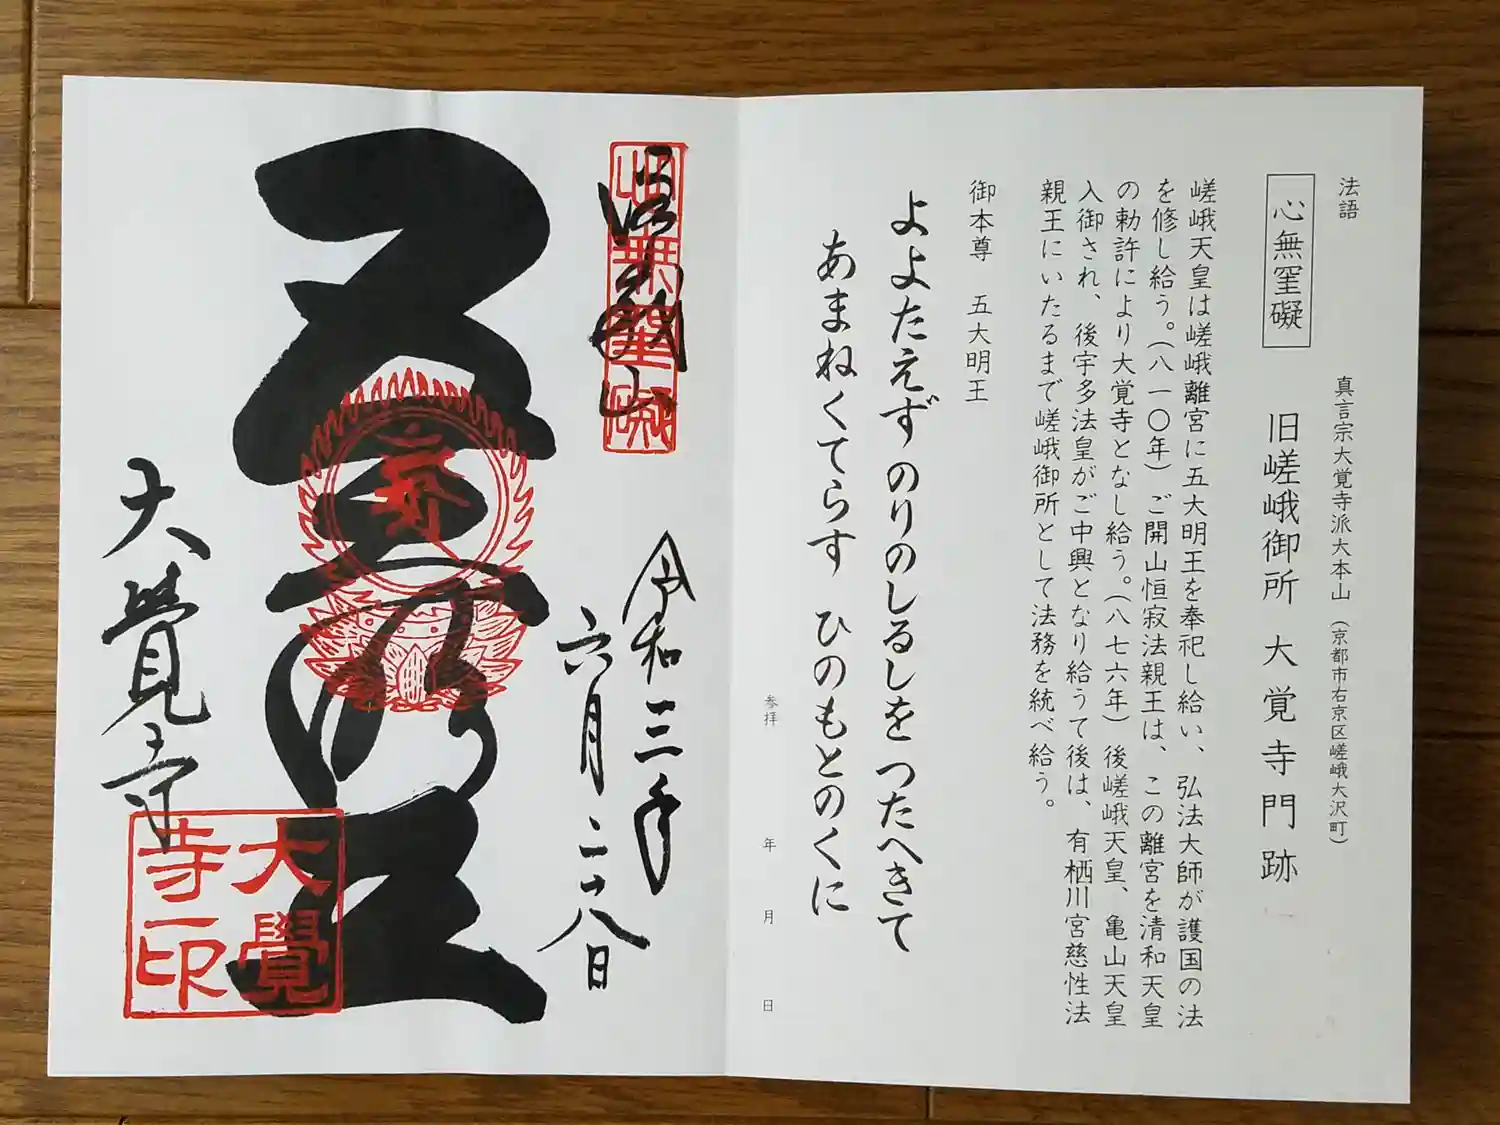 法語　真言宗大覚寺派大本山（京都市右京区嵯峨大沢町）
心無罣礙　旧嵯峨御所　大覚寺門跡
嵯峨天皇は嵯峨離宮に五大明王を奉祀し給い、弘法大師が護国の法
を修し給う。（八一〇年）ご開山恒寂法親王は、この離宮を清和天皇
の勅許により大覚寺となし給う。（八七六年）後嵯峨天皇、亀山天皇
入御され、後宇多法皇がご中興となり給うて後は、有栖川宮慈性法
親王にいたるまで嵯峨御所として法務を統べ給う。
御本尊　五大明王
よよたえず　のりのしるしを　つたへきて
あまねくてらす　ひのもとのくに
参拝　年　月　日
心無罣礙
令和三年
六月二十八日
五大明王
大覺寺
大覺
寺印